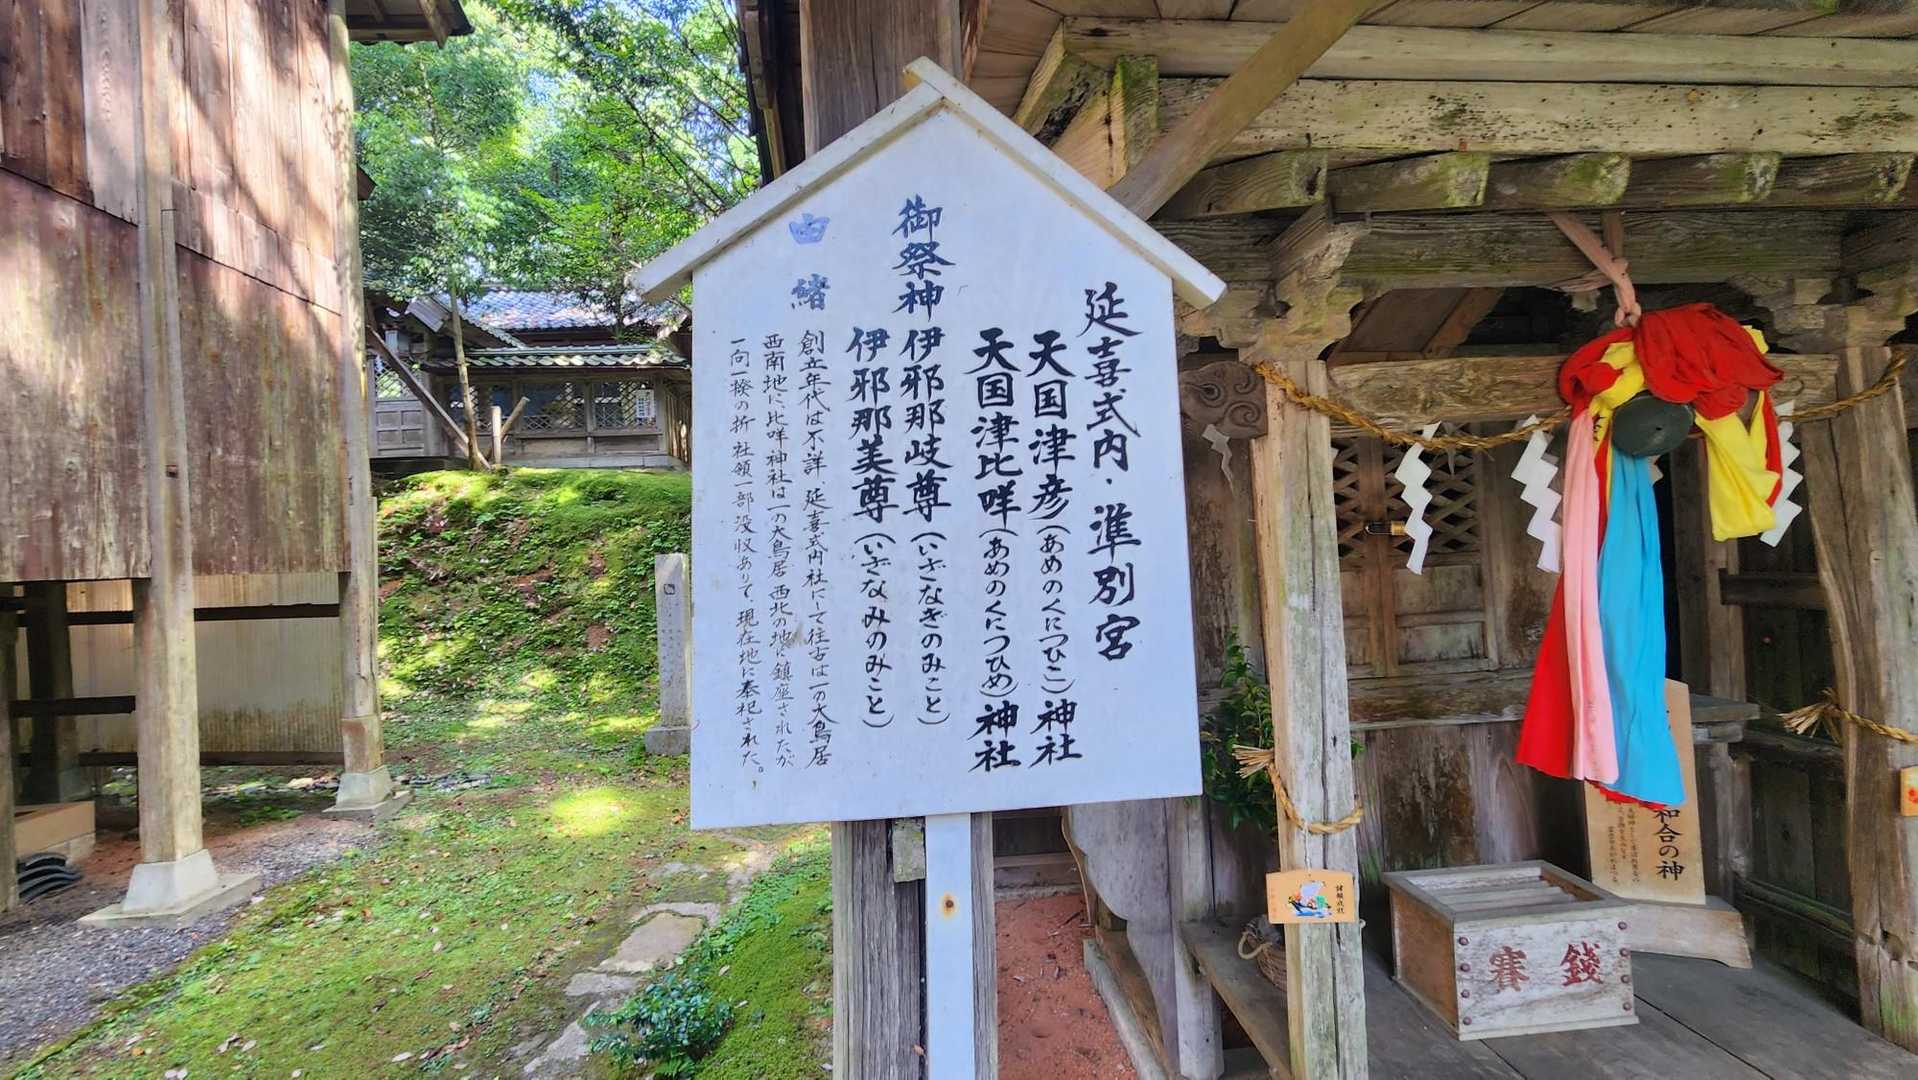 延喜式内・準別宮
天国津彦(あめのくにつひこ)神社
天国津比咩(あめのくにつひめ)神社
御祭神
伊邪那岐尊(いざなぎのみこと)
伊邪那美尊(いざなみのみこと)
由緒
創立年代は不詳、延喜式内社にして往古は一の大鳥居
西南地に比咩神社は一の大鳥居西北の地に鎮座されたが
一向一揆の折社領一部没収ありて、現在地に奉祀された。
和合の神
賽銭